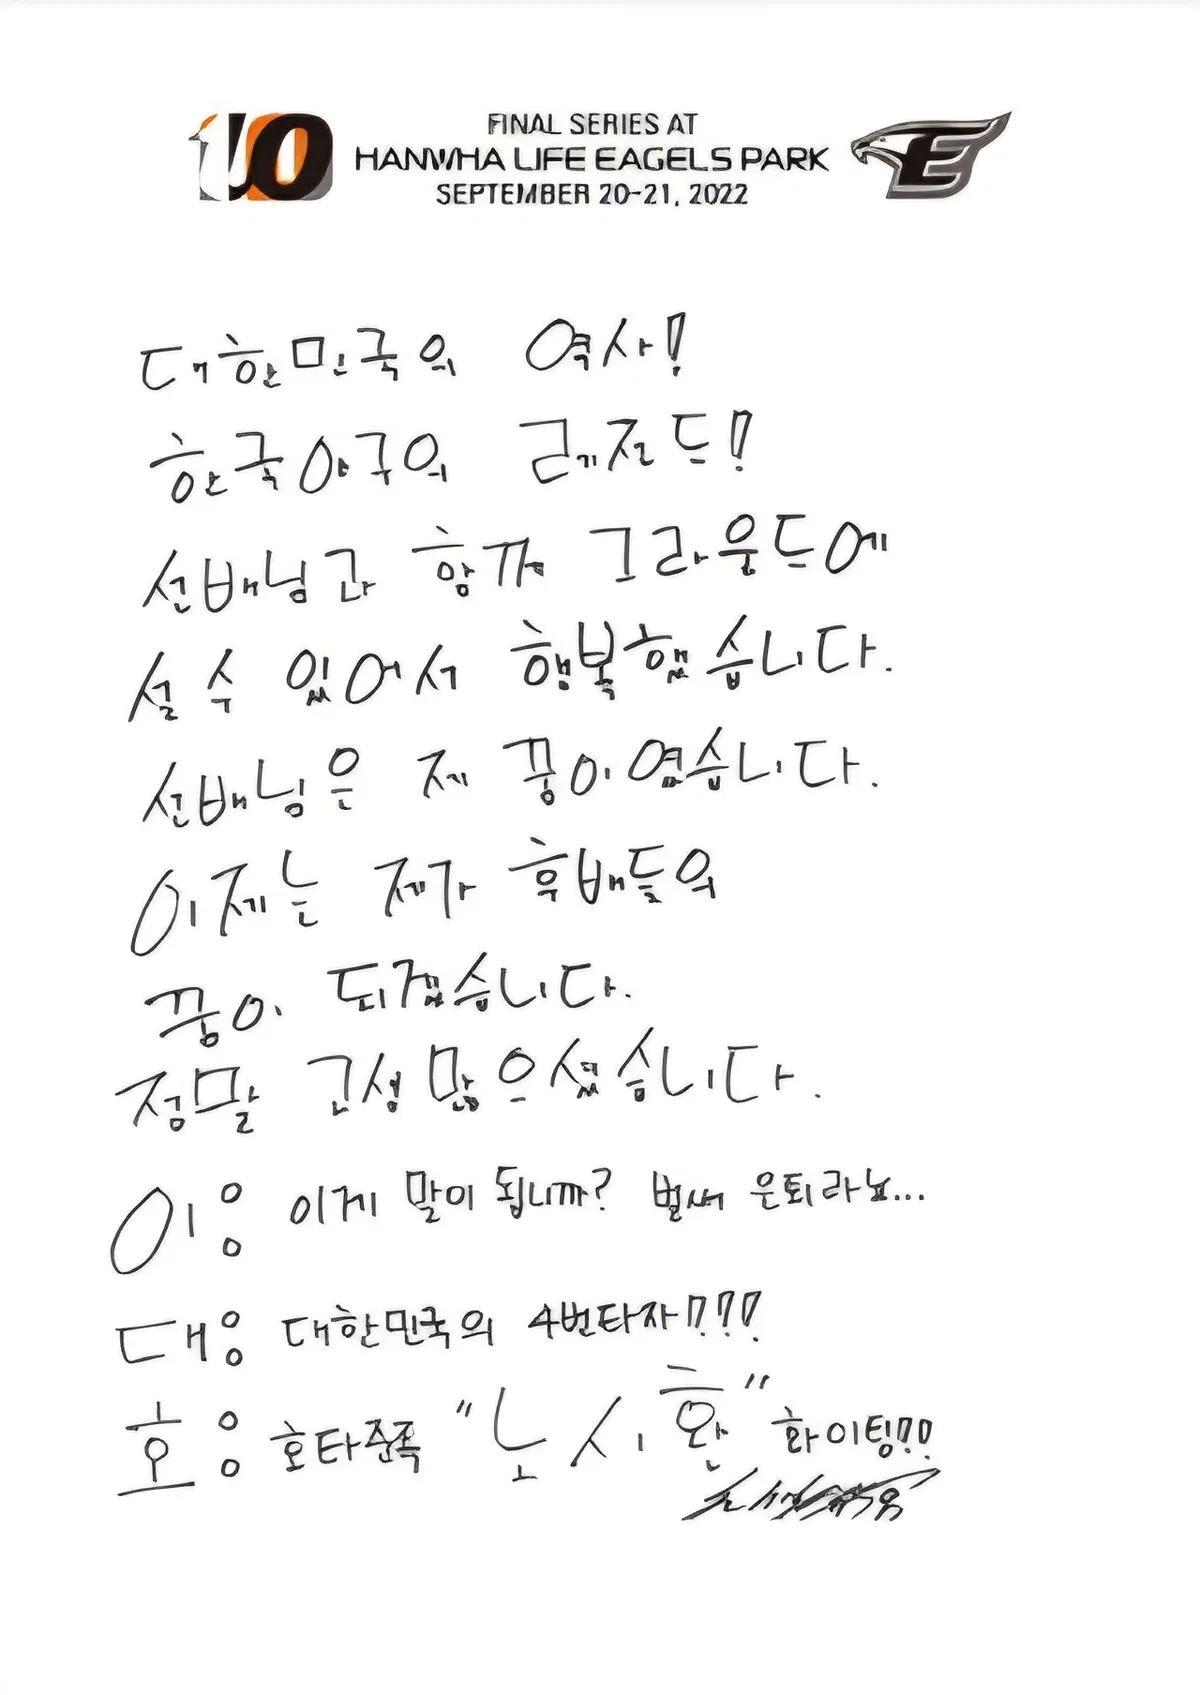 10
FINAL SERIES AT
HANWHA LIFE EAGELS PARK
SEPTEMBER 20-21, 2022
E
대한민국의 역사!
한국야구의 레전드!
선배님과 함께 그라운드에
설 수 있어서 행복했습니다.
선배님은 제 꿈이였습니다.
이제는 제가 후배들의
꿈이 되겠습니다.
정말 고생 많으셨습니다.
이: 이게 말이 됩니까? 벌써 은퇴라뇨...
대: 대한민국의 4번타자!!!!
호: 호타준족 "노시환" 화이팅!!